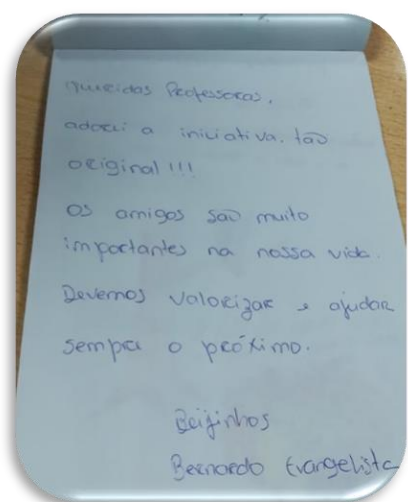 Queridas Professoras,
adorei a iniciativa. tão
original!!!
Os amigos são muito
importantes na nossa vida.
Devemos valorizar e ajudar
sempre o próximo.
Beijinhos
Bernardo Evangelista